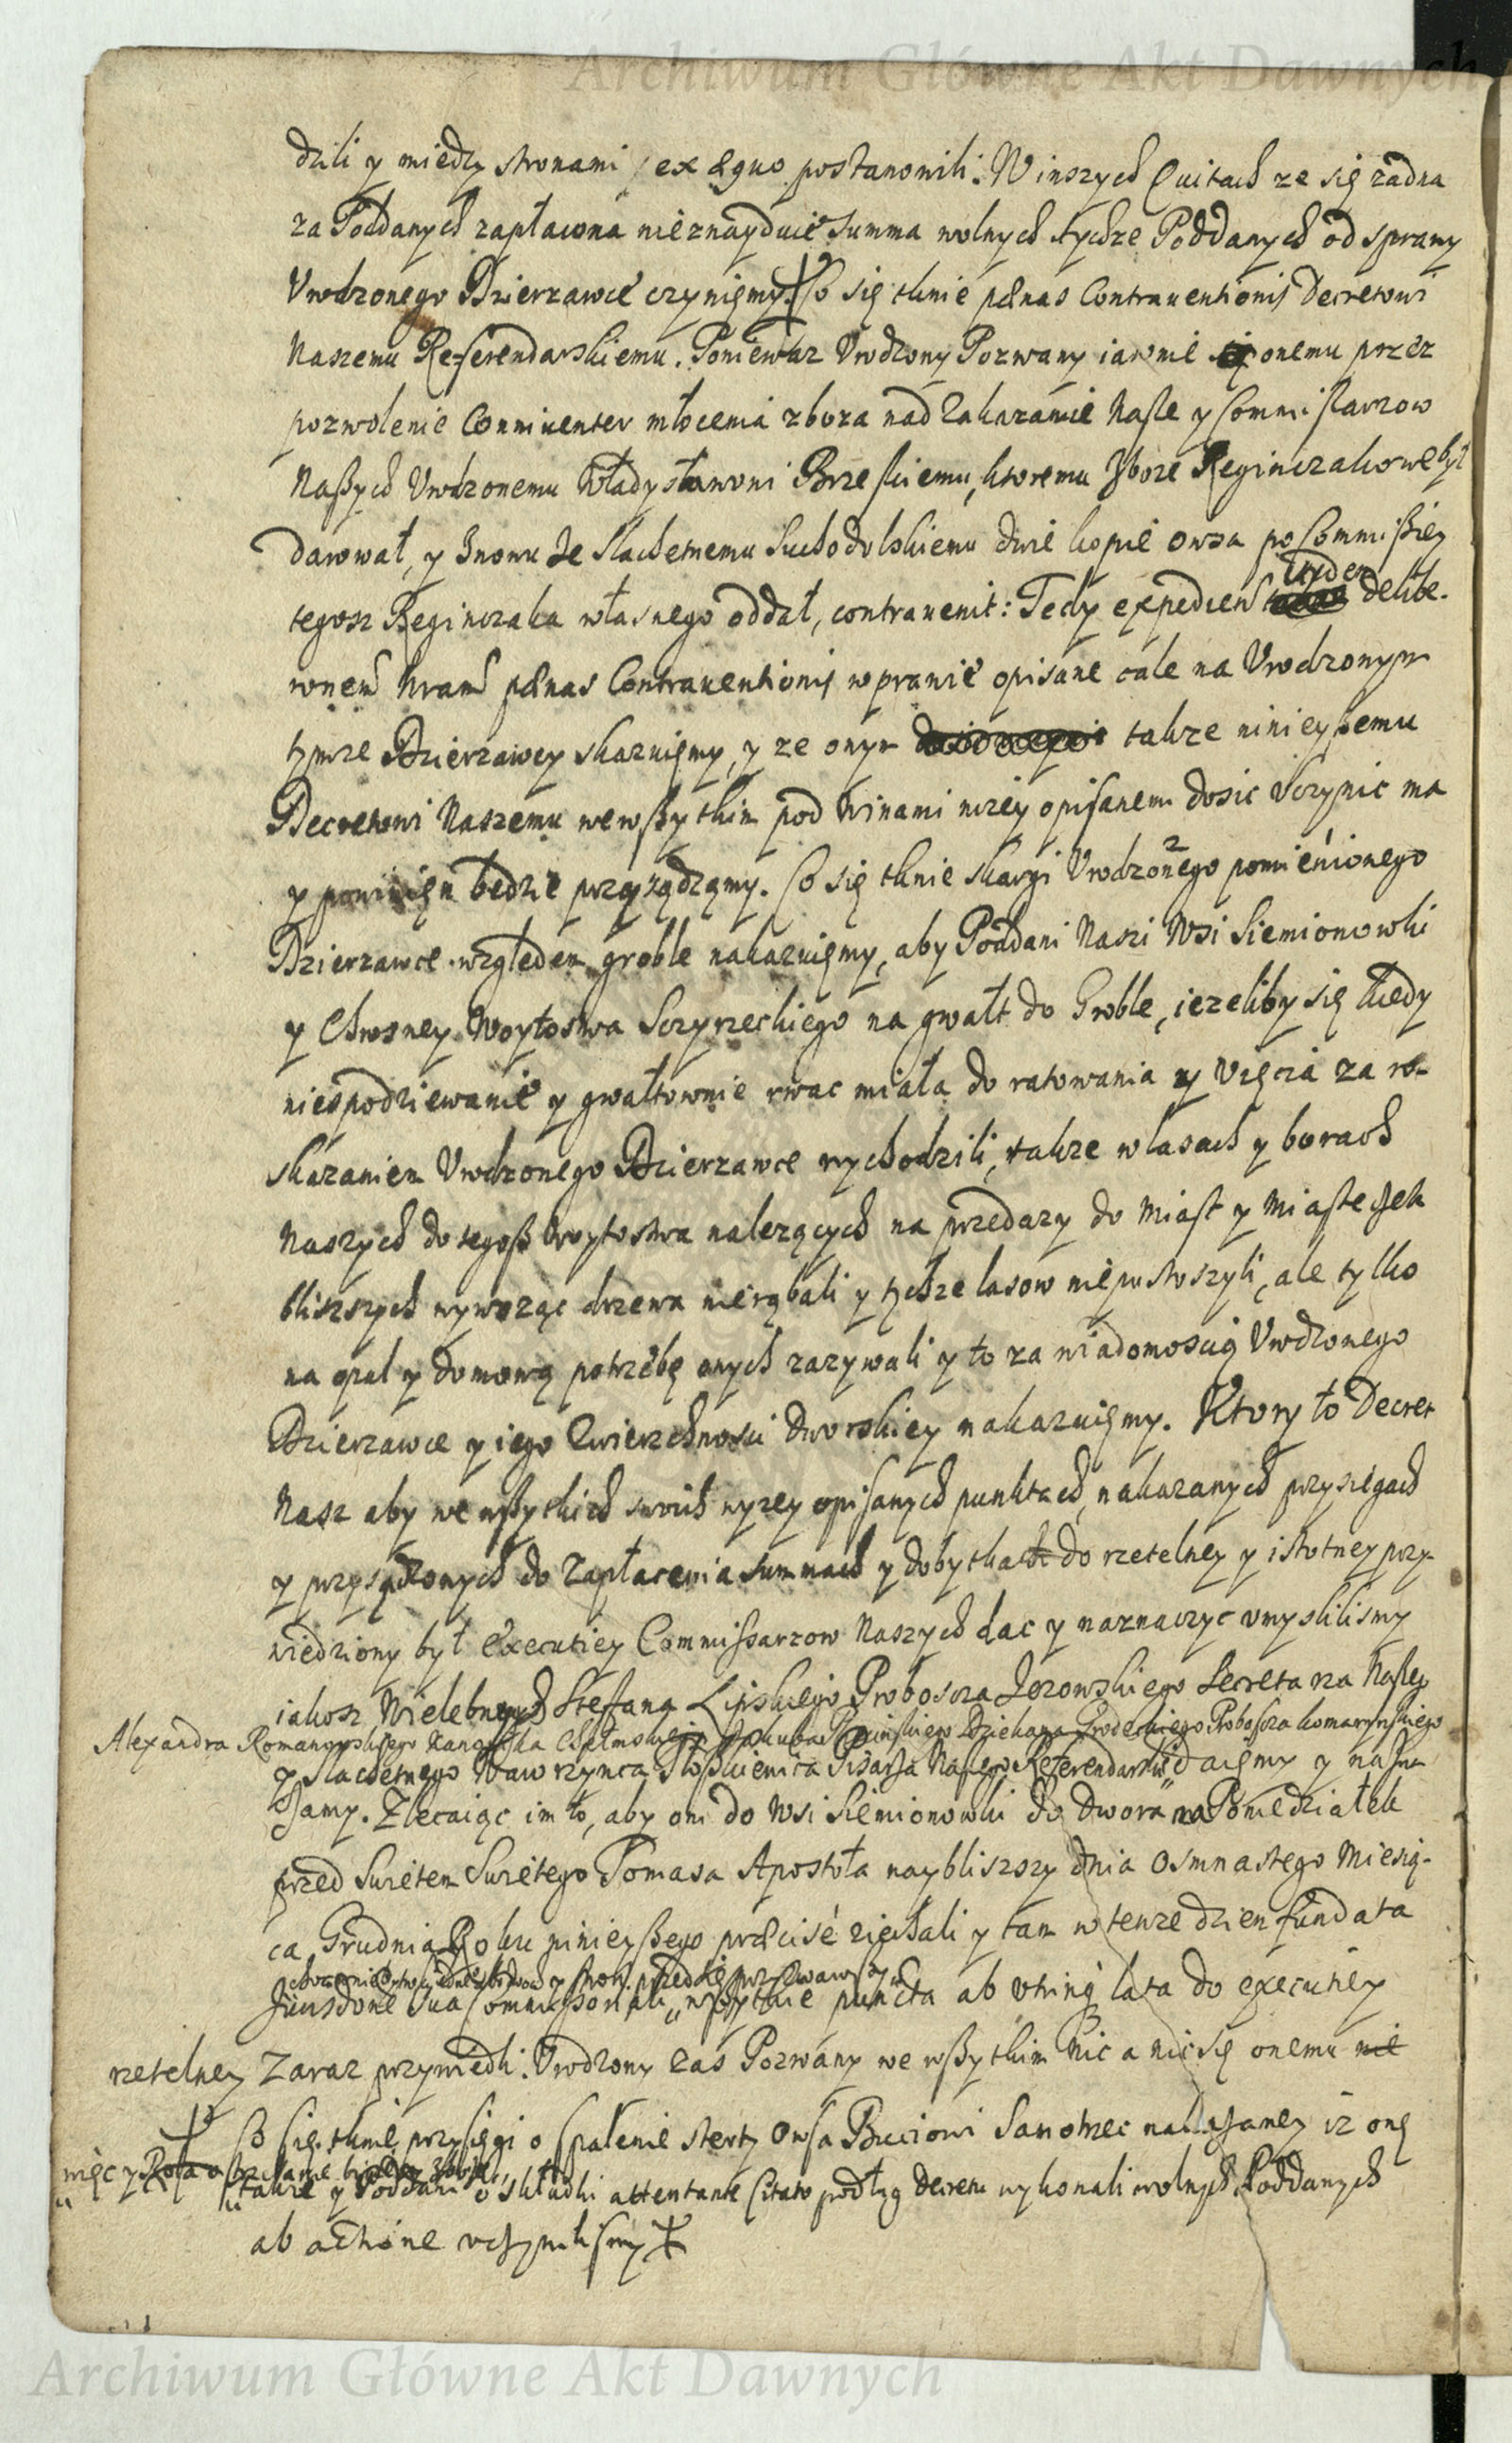 Archiwum Główne Akt Dawnych
dzili y miedzy stronami ex æquo postanowili. W inszych Quitach ze się zadna
za Poddanych zapłacona nieznayduie Summa wolnych tychze Poddanych od sprawy
Vrodzonego Dzierzawce czyniemy. Co się tknie pænas Contrauentionis Decretowi
Naszemu Referendarskiemu. Poniewaz Vrodzony Pozwany iawnie onemu przez
pozwolenie Conniuenter młocenia zboza nad Zakazanie Nasze y Commissarzow
Naszych Vrodzonemu Władysławowi Brzeskiemu, ktoremu Zboze Reginczakowe był
darował, y znowu ze Slachetnemu Suchodolskiemu dwie kopie owsa po Commissiey
tegosz Reginczaka własnego oddał, contrauenit: Tedy
pænas Contrauentionis w prawie opisane cale na Vrodzonym
tymze Dzierzawcy skazuięmy, y ze onym takze ninieyszemu
Decretowi Naszemu we wszytkim pod winami nizey opisanemi dosic vczynic ma
y powinięn będzie przysądzamy. Co się tknie skargi Vrodzonego pomienionego
Dzierzawce względem groble nakazuięmy, aby Poddani Naszi Wsi Siemionowki
y Chrosney Woytostwa Sczyrzeckiego na gwałt do Groble, iezeliby się kiedy
niespodziewanie y gwałtownie rwac miała do ratowania y vięcia za ro-
skazaniem Vrodzonego Dzierzawce wychodzili, takze w lasach y borach
Naszych do tegosz Woytostwa nalezących na przedazy do Miast y Miasteczek
bliszszych wywoząc drzewa nierąbali y tychze lasow niepustoszyli, ale tylko
na opał y domową potrzebę onych zazywali y to za wiadomoscią Vrodzonego
Dzierzawce y iego Zwierzchnosci dworskiey nakazuięmy. Ktory to Decret
Nasz aby we wszytkich swoich wyzey opisanych punktach, nakazanych przysięgach
y przysądzonych do zapłacenia summach y dobytkach do rzetelney y istotney przy-
wiedziony był executiey Commissarzow Naszych dac y naznaczyc vmysliliśmy
iakosz Wielebnych Stefana Lipskiego Proboscza Jozowskiego Secretarza Naszego
Alexandra Romanowskiego Kanonika Chełmskiego Jakuba Dziekana Grodeckiego Proboscza komarzynskiego
y Slachetnego Wawrzynca Pisarza Naszego Referendarskie daięmy y nazna-
czamy. Zlecaiąc im to, aby oni do Wsi Siemionowki do dwora na Poniedziałek
przed Swiętem Swiętego Tomasza Apostoła naybliszszy dnia Osmnastego Miesią-
ca Grudnia Roku ninieyszego præcise ziechali y tam w tenze dzien fundata
Jurisdone sua Commissoriali wszytkie puncta ab vtrinq lata do executiey
rzetelney Zaraz przywiedli. Vrodzony zas Pozwany we wszytkim Nic a nic się onemu nie
Co się tknie przysięgi o spalenie sterty Owsa nakazaney iz onę
takze y Poddani o składki attentante citato podług Decretu wykonali wolnych Poddanych
ab actione vczynilismy
Archiwum Główne Akt Dawnych